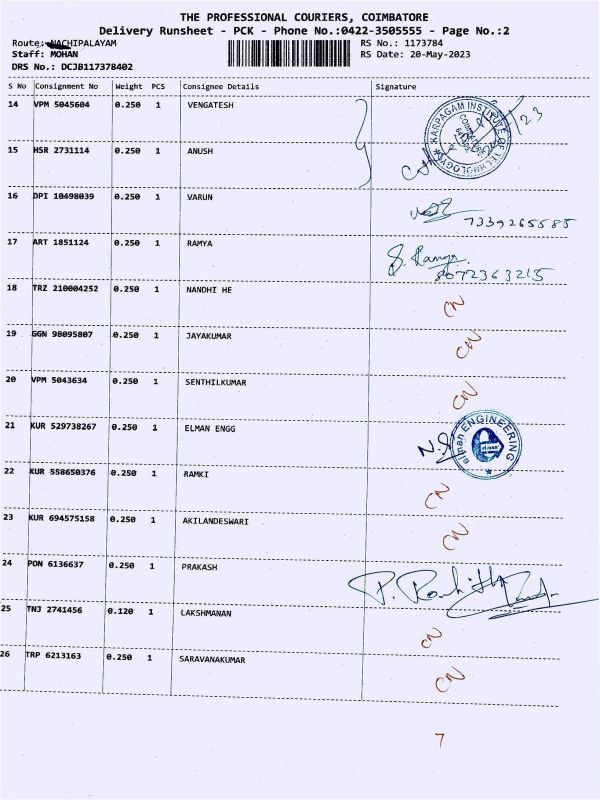 THE PROFESSIONAL COURIERS, COIMBATORE
Delivery Runsheet - PCK - Phone No.:0422-3505555 - Page No.:2
Route: NACHIPALAYAM RS No.: 1173784
Staff: MOHAN RS Date: 20-May-2023
DRS No.: DCJB117378402
S No Consignment No Weight PCS Consignee Details Signature
14 VPM 5045604 0.250 1 VENGATESH
KARPAGAM INSTITUTE OF TECHNOLOGY
15 HSR 2731114 0.250 1 ANUSH
16 DPI 10498039 0.250 1 VARUN
7339265585
17 ART 1851124 0.250 1 RAMYA S. Ramya
8072363215
18 TRZ 210004252 0.250 1 NANDHI HE CN
19 GGN 98095807 0.250 1 JAYAKUMAR CN
20 VPM 5043634 0.250 1 SENTHILKUMAR CN
21 KUR 529738267 0.250 1 ELMAN ENGG elman ENGINEERING
22 KUR 558650376 0.250 1 RAMKI CN
23 KUR 694575158 0.250 1 AKILANDESWARI CN
24 PON 6136637 0.250 1 PRAKASH
25 TNJ 2741456 0.120 1 LAKSHMANAN CN
26 TRP 6213163 0.250 1 SARAVANAKUMAR CN
7